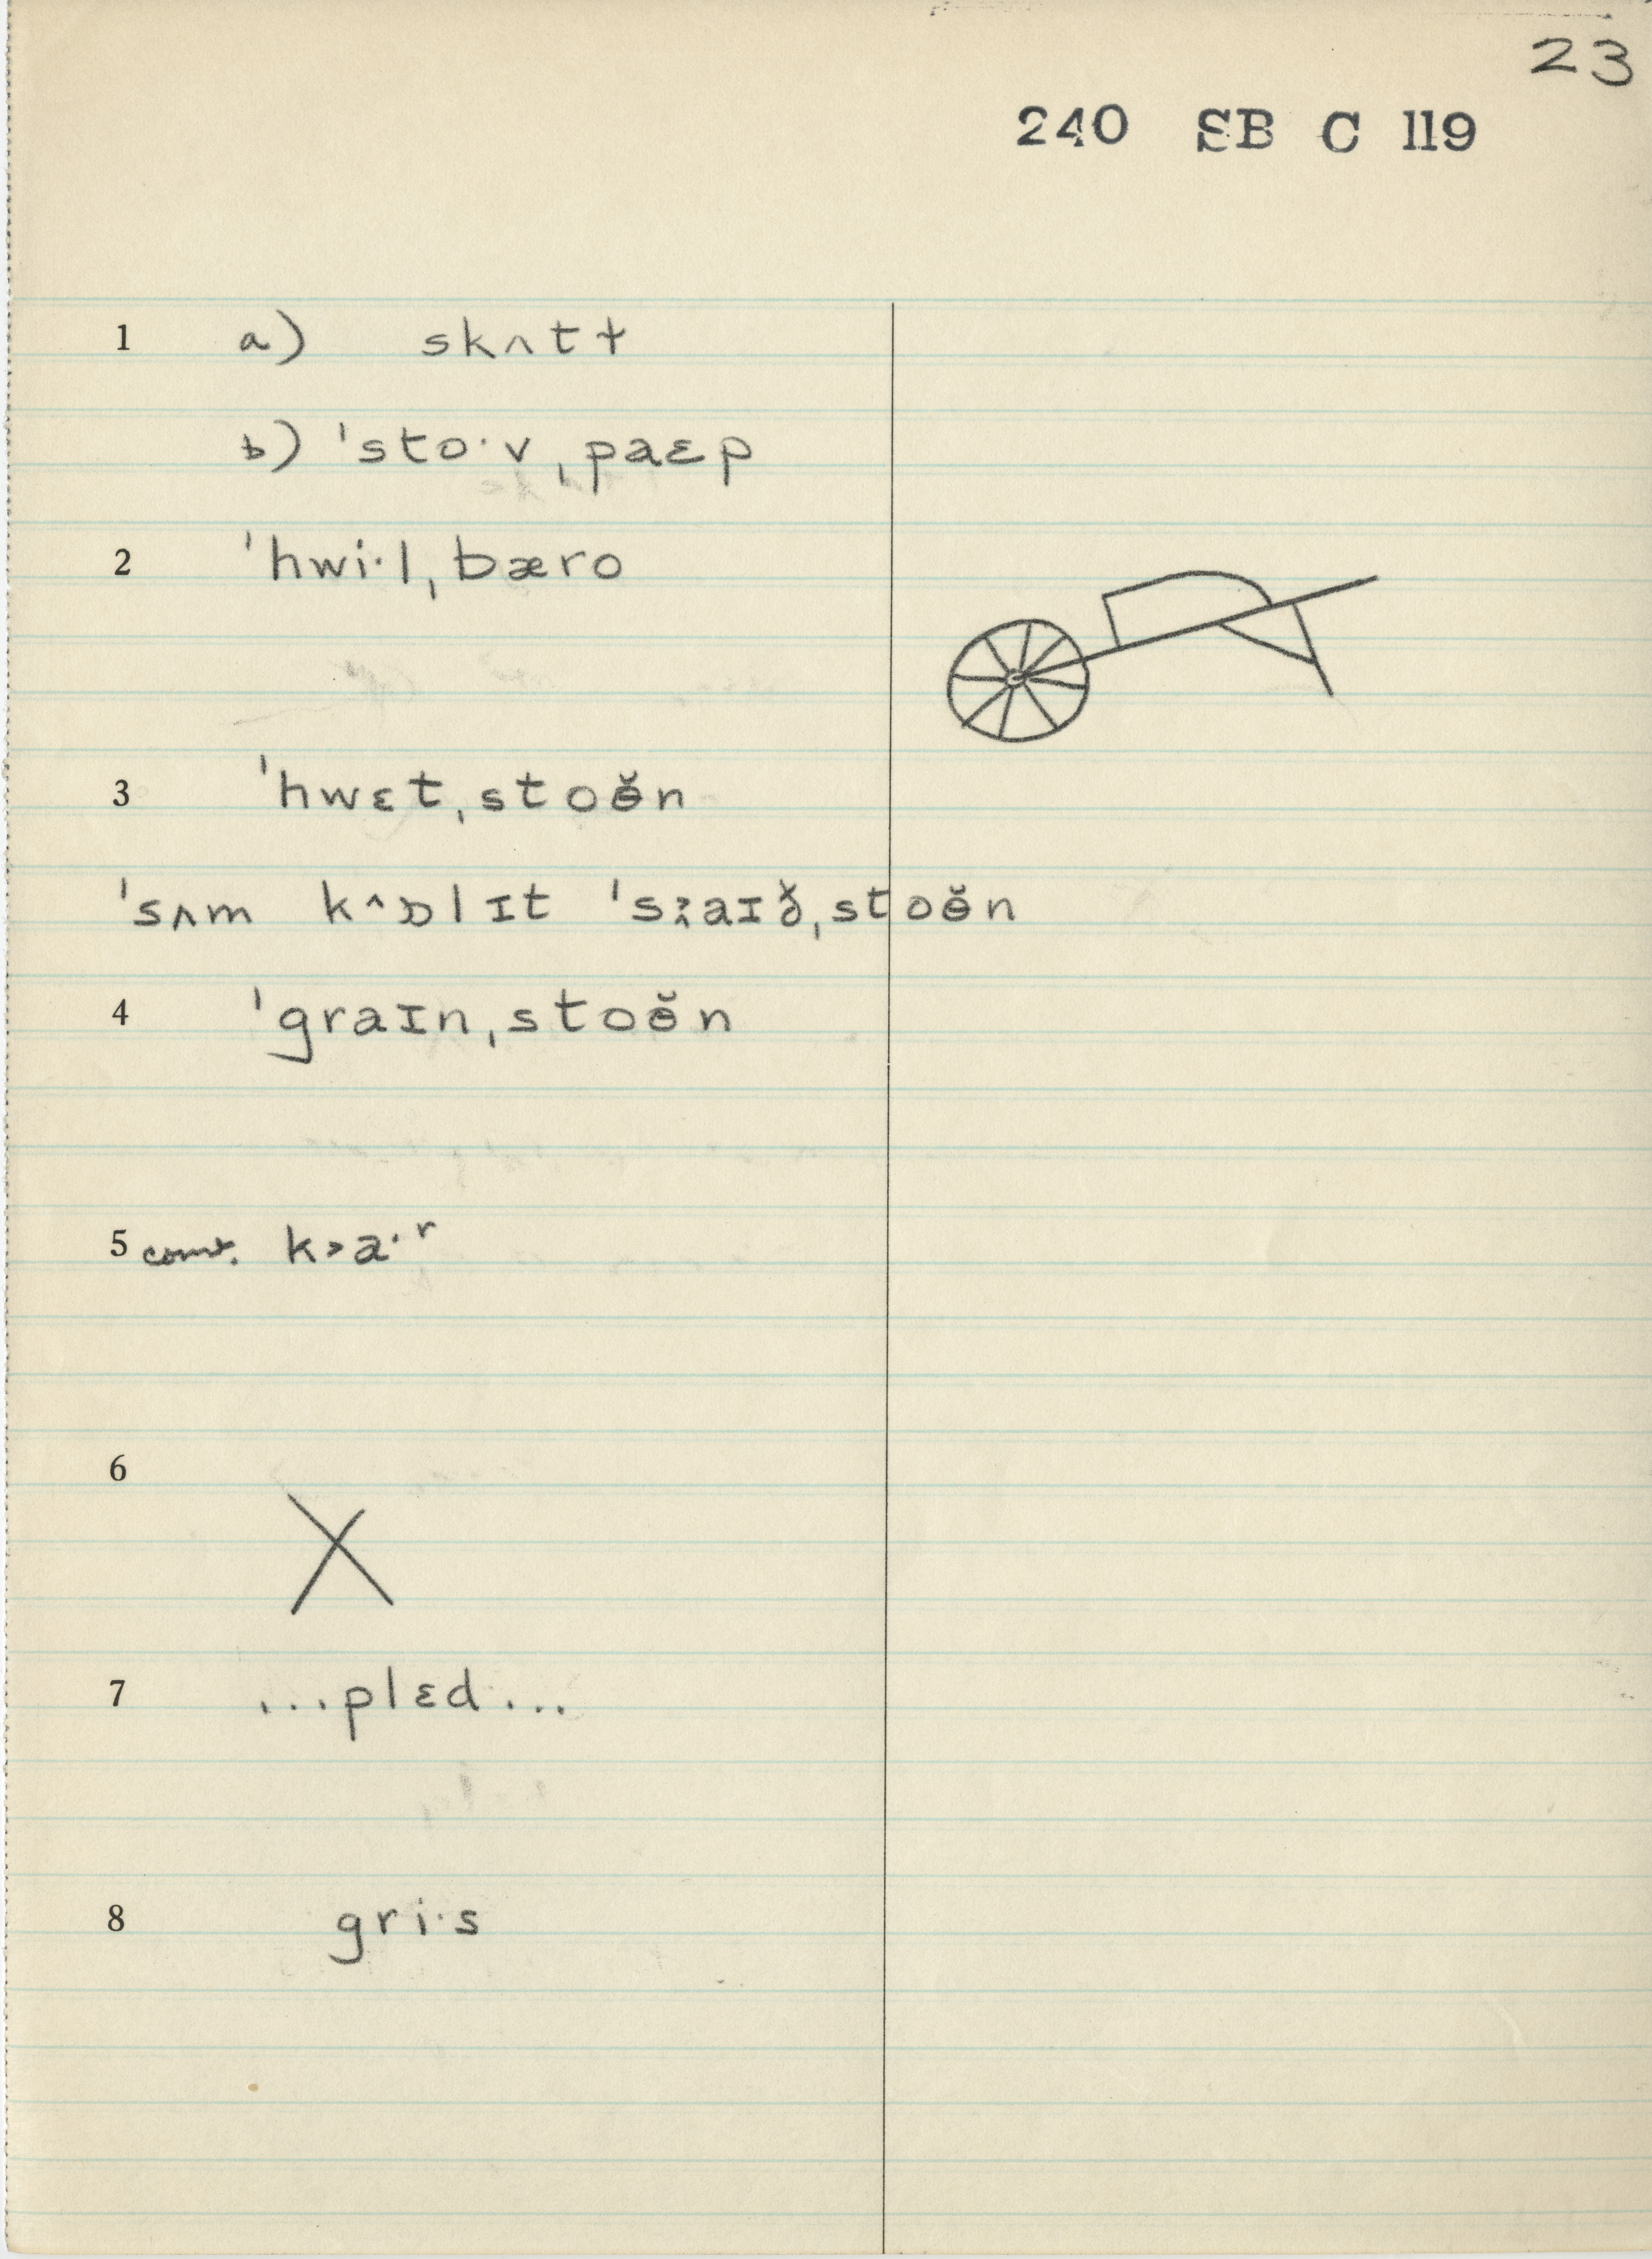 23
240 SB C 119
1 a) skʌtɫ
b) ˈstoˑvˌpaɛp
2 ˈhwiˑlˌbæro
3 ˈhwɛtˌstoɵ̆n
ˈsʌm k^ɒlɪt ˌstoɵ̆n
4 ˈgraɪnˌstoɵ̆n
5 conv. k>aˑʳ
6
7 ...plɛd...
8 griˑs